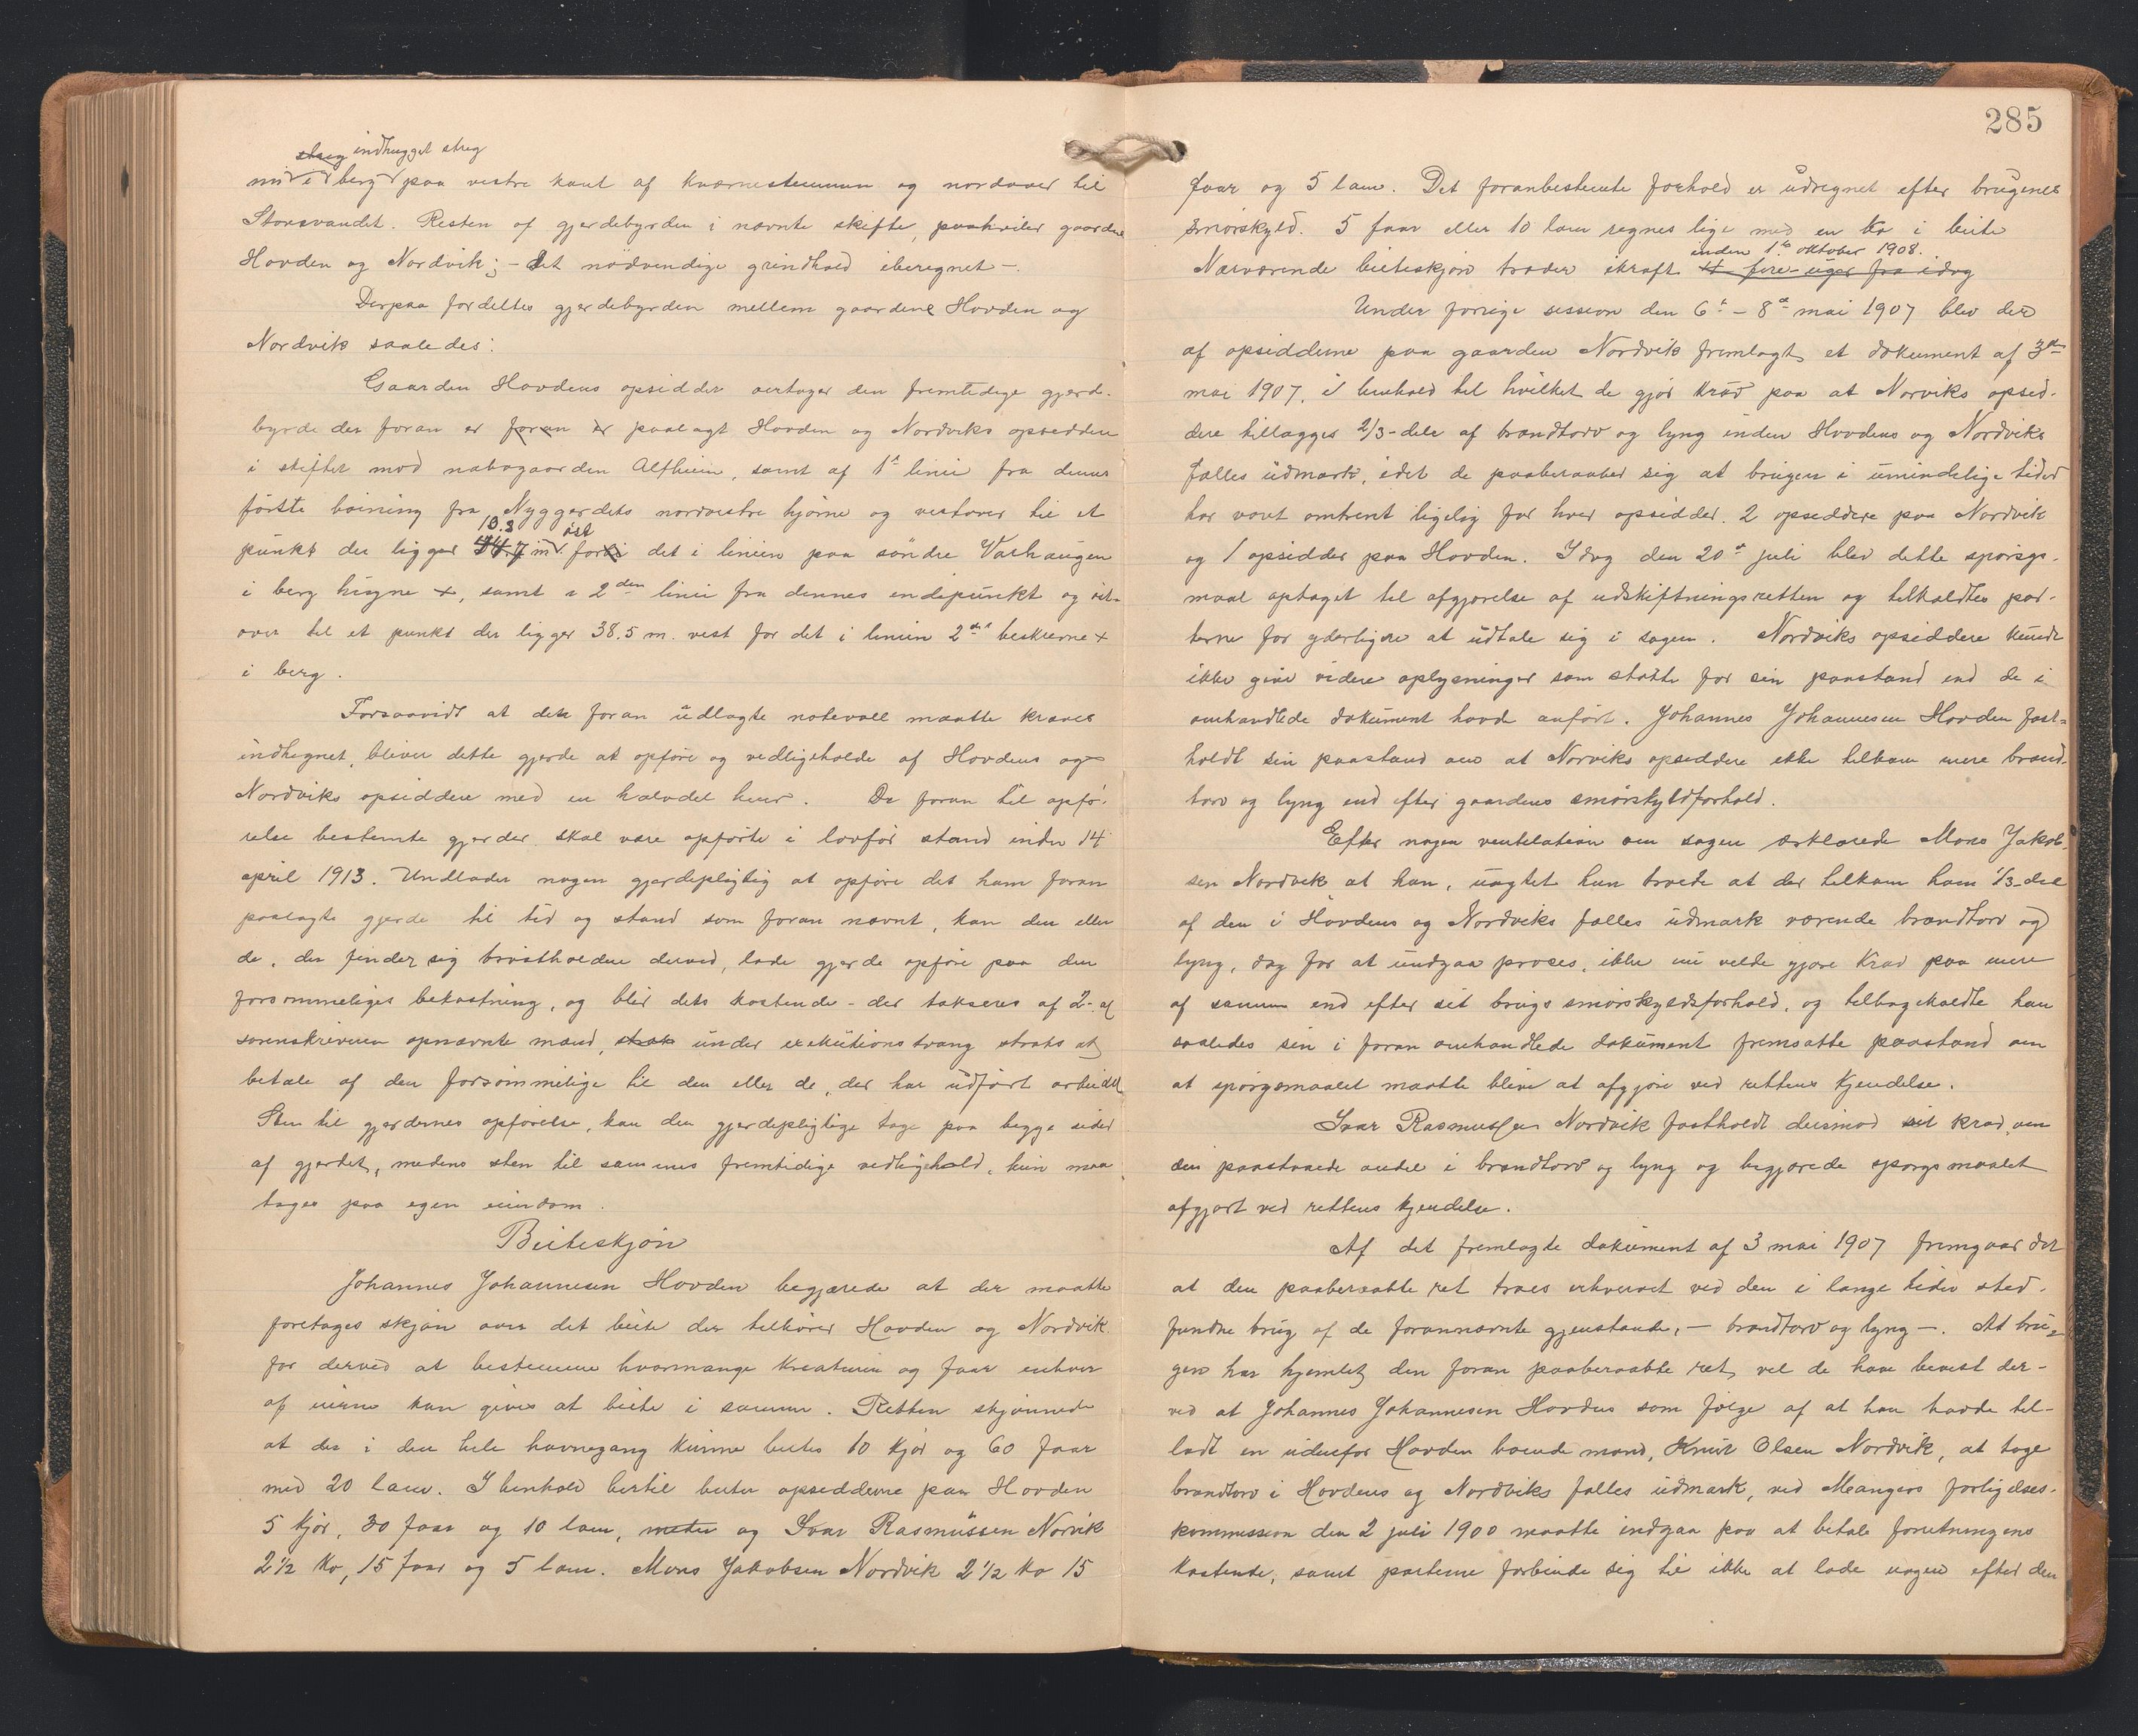 streg indhugget streg
nu i berg paa vestre kant af kværnestemmen og nordover til
Storavandet. Resten af gjerdebyrden i nævnte skifte, paahviler gaardene
Hovden og Nordvik; - det nødvendige grindhold iberegnet -.
Derpaa fordeltes gjerdebyrden mellem gaardene Hovden og
Nordvik saaledes:
Gaarden Hovdens opsidder overtager den fremtidige gjerde-
byrde der foran er foran er paalagt Hovden og Nordviks opsiddere
i skiftet mod nabogaarden Alfheim, samt af 1ste linie fra dennes
første bøining fra Nyggerdets nordvestre hjørne og vestover til et
13.3 øst
punkt der ligger 14.7 m. for i det i linien paa søndre Varhaugen
i berg hugne +, samt i 2den linie fra dennes endepunkt og vest-
over til et punkt der ligger 38.5 m. vest for det i linien 2det beskrevne +
i berg.
Forsaavidt at den foran udlagte notevoll maatte kræves
indhegnet, bliver dette gjerde at opføre og vedligeholde af Hovdens og
Nordviks opsiddere med en halvdel hver. De foran til opfø-
relse bestemte gjerder skal være opførte i lovfør stand inden 14
april 1913. Undlader nogen gjerdepligtig at opføre det ham foran
paalagte gjerde til tid og stand som foran nævnt, kan den eller
de, der finder sig brøstholdne derved, lade gjerde opføre paa den
forsømmeliges bekostning, og blir dets kostende - der takseres af 2 af
sorenskriveren opnævnte mænd, straks under exekutions tvang straks at
betale af den forsømmelige til den eller de, der har udført arbeidet
Sten til gjerdernes opførelse, kan den gjerdepligtige tage paa begge sider
af gjerdet, medens sten til sammes fremtidige vedligehold, kun maa
tages paa egen eiendom.
Beiteskjøn
Johannes Johannesen Hovden begjærede at der maatte
foretages skjøn over det beite der tilhører Hovden og Nordvik
for derved at bestemme hvormange kreaturer og faar enhver
af eierne kan gives at beite i samme. Retten skjønnede
at der i den hele havnegang kunne beites 10 kjør og 60 faar
med 20 lam. I henhold hertil beiter opsidderne paa Hovden
5 kjør, 30 faar og 10 lam, og Ivar Rasmussen Norvik
2 1/2 ko, 15 faar og 5 lam. Mons Jakobsen Nordvik 2 1/2 ko 15
285
faar og 5 lam. Det foranbestemte forhold er udregnet efter brugenes
smørskyld. 5 faar eller 10 lam regnes lige med en ko i beite
inden 1ste oktober 1908.
Nærværende beiteskjøn træder ikraft 4 fire uger fra idag
Under forrige session den 6te - 8de mai 1907 blev der
af opsidderne paa gaarden Nordvik fremlagt et dokument af 3die
mai 1907, i henhold til hvilket de gjør krav paa at Norviks opsid-
dere tillægges 2/3-dele af brændtorv og lyng inden Hovdens og Nordviks
fælles udmark, idet de paaberaaber sig at brugen i umindelige tider
har været omtrent ligelig for hver opsidder. 2 opsiddere paa Nordvik
og 1 opsidder paa Hovden. Idag den 20de juli blev dette spørsgs-
maal optaget til afgjørelse af udskiftningsretten og tilkaldtes par-
terne for yderligere at udtale sig i sagen. Nordviks opsiddere kunde
ikke give videre oplysninger som støtte for sin paastand end de i
omhandlede dokument havde anført. Johannes Johannesen Hovden fast-
holdt sin paastand om at Norviks opsiddere ikke tilkom mere brænd-
torv og lyng end efter gaardens smørskyldforhold.
Efter nogen ventelation om sagen erklærede Mons Jakob-
sen Nordvik at han, uagtet han troede at der tilkom ham 1/3-del
af den i Hovdens og Nordviks fælles udmark værende brændtorv og
lyng, dog for at undgaa proces, ikke nu vilde gjøre krav paa mere
af samme end efter sit brugs smørskyldsforhold, og tilbagekaldte han
saaledes sin i foran omhandlede dokument fremsatte paastand om
at spørgsmaalet maatte blive at afgjøre ved rettens kjendelse.
Ivar Rasmussen Nordvik fastholdt derimod sit krav om
den paastaaede andel i brændtorv og lyng og begjærede spørgsmaalet
afgjort ved rettens kjendelse.
Af det fremlagte dokument af 3 mai 1907 fremgaar det
at den paaberaabte ret troes erhvervet ved den i lange tider sted-
fundne brug af de forannævnte gjenstande, - brændtorv og lyng -. At bru-
gen har hjemlet den foran paaberaabte ret, vil de have bevist der-
ved at Johannes Johannesen Hovden som følge af at han havde til-
ladt en udenfor Hovden boende mand, Knut Olsen Nordvik, at tage
brændtorv i Hovdens og Nordviks fælles udmark, ved Mangers forligelses-
kommission den 2 juli 1900 maatte indgaa paa at betale forretningens
kostende, samt parterne forbinde sig til ikke at lade nogen efter den